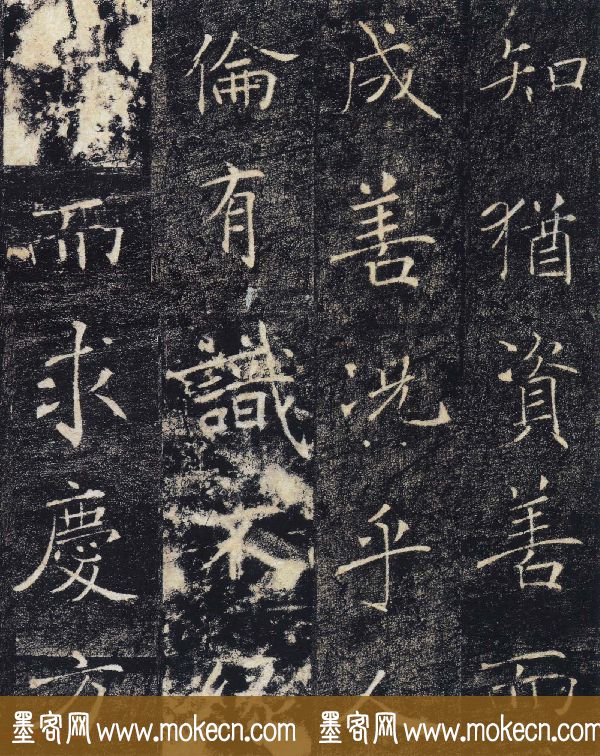 知猶資善而
成善況乎人
倫有識不
而求慶方
墨客网 www.mokecn.com 墨客网 www.mokecn.com